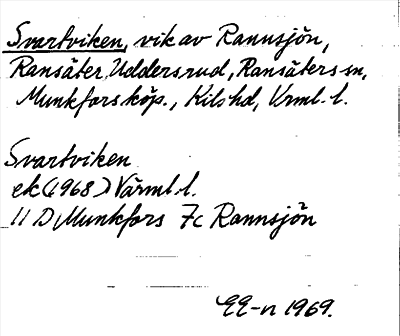 Svartviken, vik av Rannsjön,
Ransäter Uddersrud, Ransäters sn,
Munkfors köp., Kils hd, Vrml. l.
Svartviken
ek (1968) Värml. l.
11 D Munkfors 7c Rannsjön
EE-n 1969.